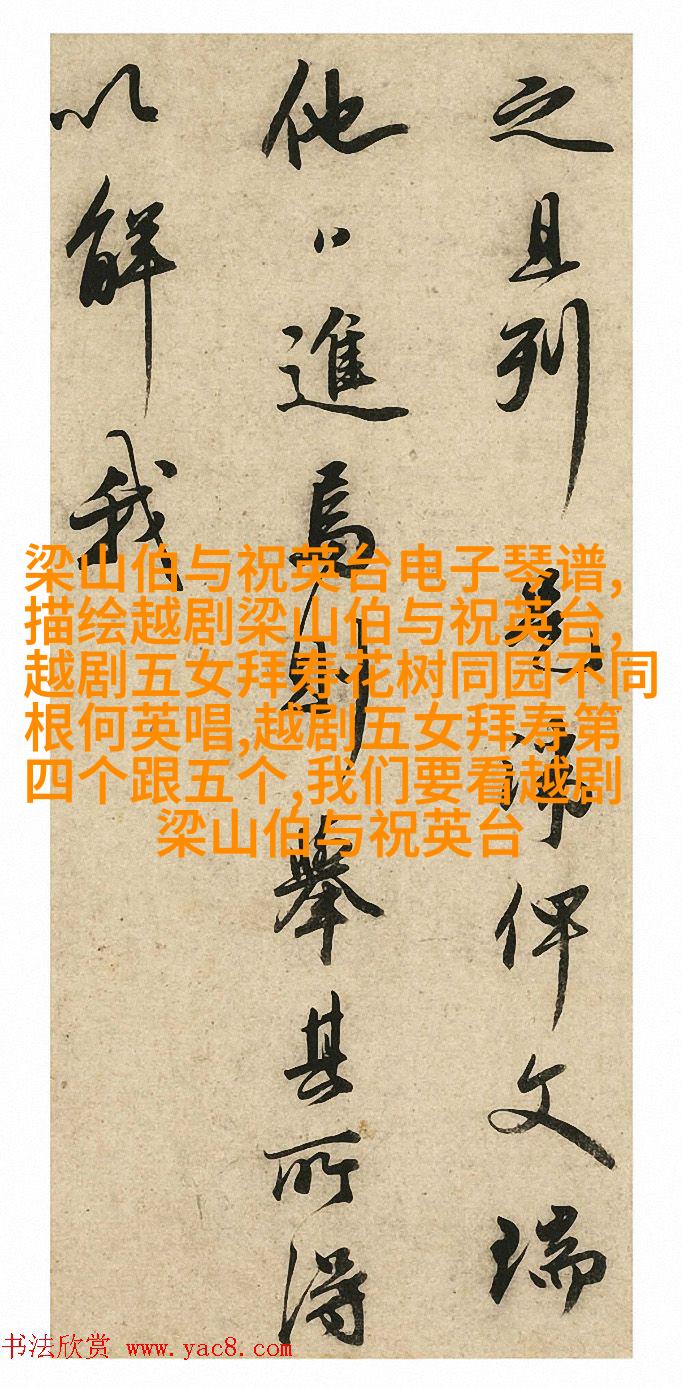 之且列是諦俾文瑞
他日進焉則舉其所得
以解我
梁山伯与祝英台电子琴谱,
描绘越剧梁山伯与祝英台,
越剧五女拜寿花树同园不同
根何英唱,越剧五女拜寿第
四个跟五个,我们要看越剧
梁山伯与祝英台
书法欣赏 www.yac8.com